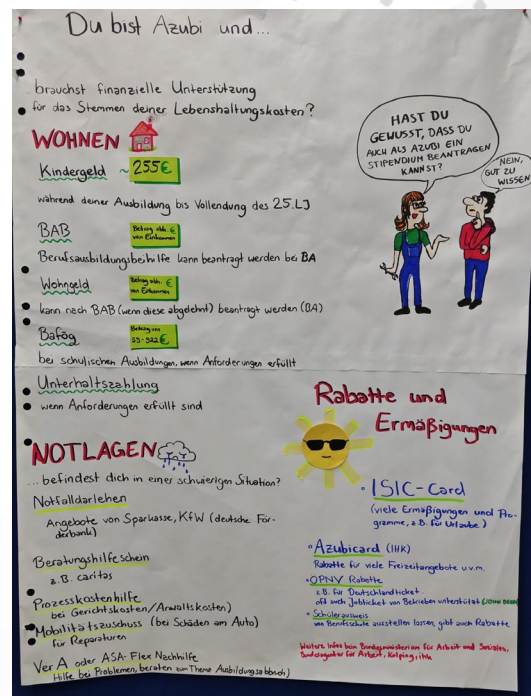 Du bist Azubi und...
brauchst finanzielle Unterstützung
für das Stemmen deiner Lebenshaltungskosten?
WOHNEN
Kindergeld ~ 255€
während deiner Ausbildung bis Vollendung des 25.LJ
BAB
Betrag abh. €
von Einkommen
Berufsausbildungsbeihilfe kann beantragt werden bei BA
Wohngeld
Betrag abh. €
von Einkommen
kann nach BAB (wenn diese abgelehnt) beantragt werden (BA)
Bafög
Betrag von
59-922 €
bei schulischen Ausbildungen, wenn Anforderungen erfüllt
Unterhaltszahlung
wenn Anforderungen erfüllt sind
HAST DU
GEWUSST, DASS DU
AUCH ALS AZUBI EIN
STIPENDIUM BEANTRAGEN
KANNST?
NEIN,
GUT ZU
WISSEN
NOTLAGEN
...befindest dich in einer schwierigen Situation?
Notfalldarlehen
Angebote von Sparkasse, KfW (deutsche För-
derbank)
Beratungshilfeschein
z.B. caritas
Prozesskostenhilfe
bei Gerichtskosten/Anwaltskosten)
Mobilitätszuschuss (bei Schäden am Auto)
für Reparaturen
Ver A oder ASA-Flex Nachhilfe
Hilfe bei Problemen, beraten zum Thema Ausbildungsabbruch)
Rabatte und
Ermäßigungen
ISIC-Card
(viele Ermäßigungen und Pro-
gramme, z.B. für Urlaube)
Azubicard (IHK)
Rabatte für viele Freizeitangebote u.v.m.
ÖPNV Rabatte
z.B. für Deutschlandticket
oft auch Jobticket von Betrieben unterstützt (JOHN DEERE)
Schülerausweis
von Berufsschule ausstellen lassen, gibt auch Rabatte
Weitere Infos beim Bundesministerium für Arbeit und Soziales,
Bundesagentur für Arbeit, Kolping, ihk